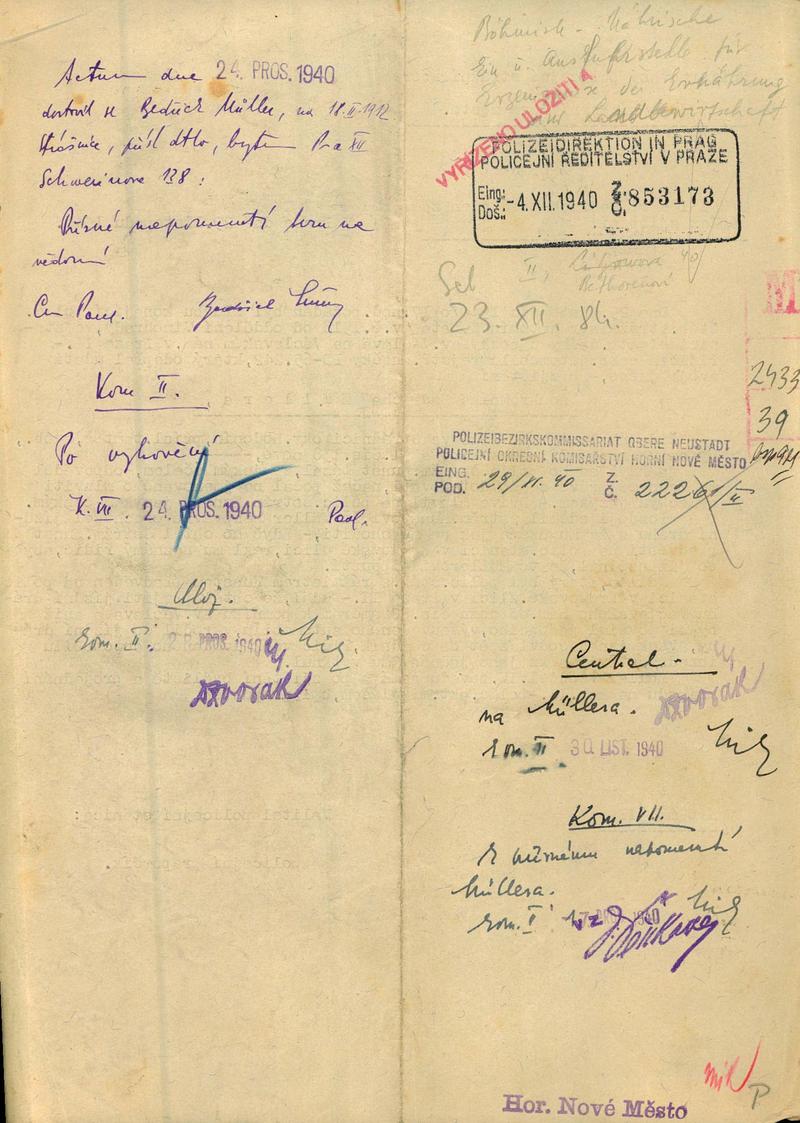 Actum dne 24. PROS. 1940
dostavil se Bedřich Müller, na 18.II.1912
Strážnice, přísl. dtto, bytem Praha XII
Schwerinova 138 :
Přísné napomenutí beru na
vědomí
Bedřich Müller
Kom II.
Po vyhovění
K. VII. 24. PROS. 1940
Aloj.
kom. II. PROS. 1940
Dvorak
Böhmisch - Mährische
Ein u. Ausfuhrstelle für
Erzeugnisse der Ernährung
und Landwirtschaft
VYŘÍZENO ULOŽITI A
POLIZEIDIREKTION IN PRAG
POLICEJNÍ ŘEDITELSTVÍ V PRAZE
Eing.:
Doš.: -4. XII. 1940 Z. Č. 853173
II,
23. XII. 84.
M
2433
39
POLIZEIBEZIRKSKOMMISSARIAT OBERE NEUSTADT
POLICEJNÍ OKRESNÍ KOMISAŘSTVÍ HORNÍ NOVÉ MĚSTO
EING. Z.
POD. 29/XI. 40 Č. 22261/II
Central -
na Müllera.
Dvorak
kom. II 30. LIST. 1940
Kom. VII.
K přísnému napomenutí
Müllera.
kom. II 1940
Hor. Nové Město
P